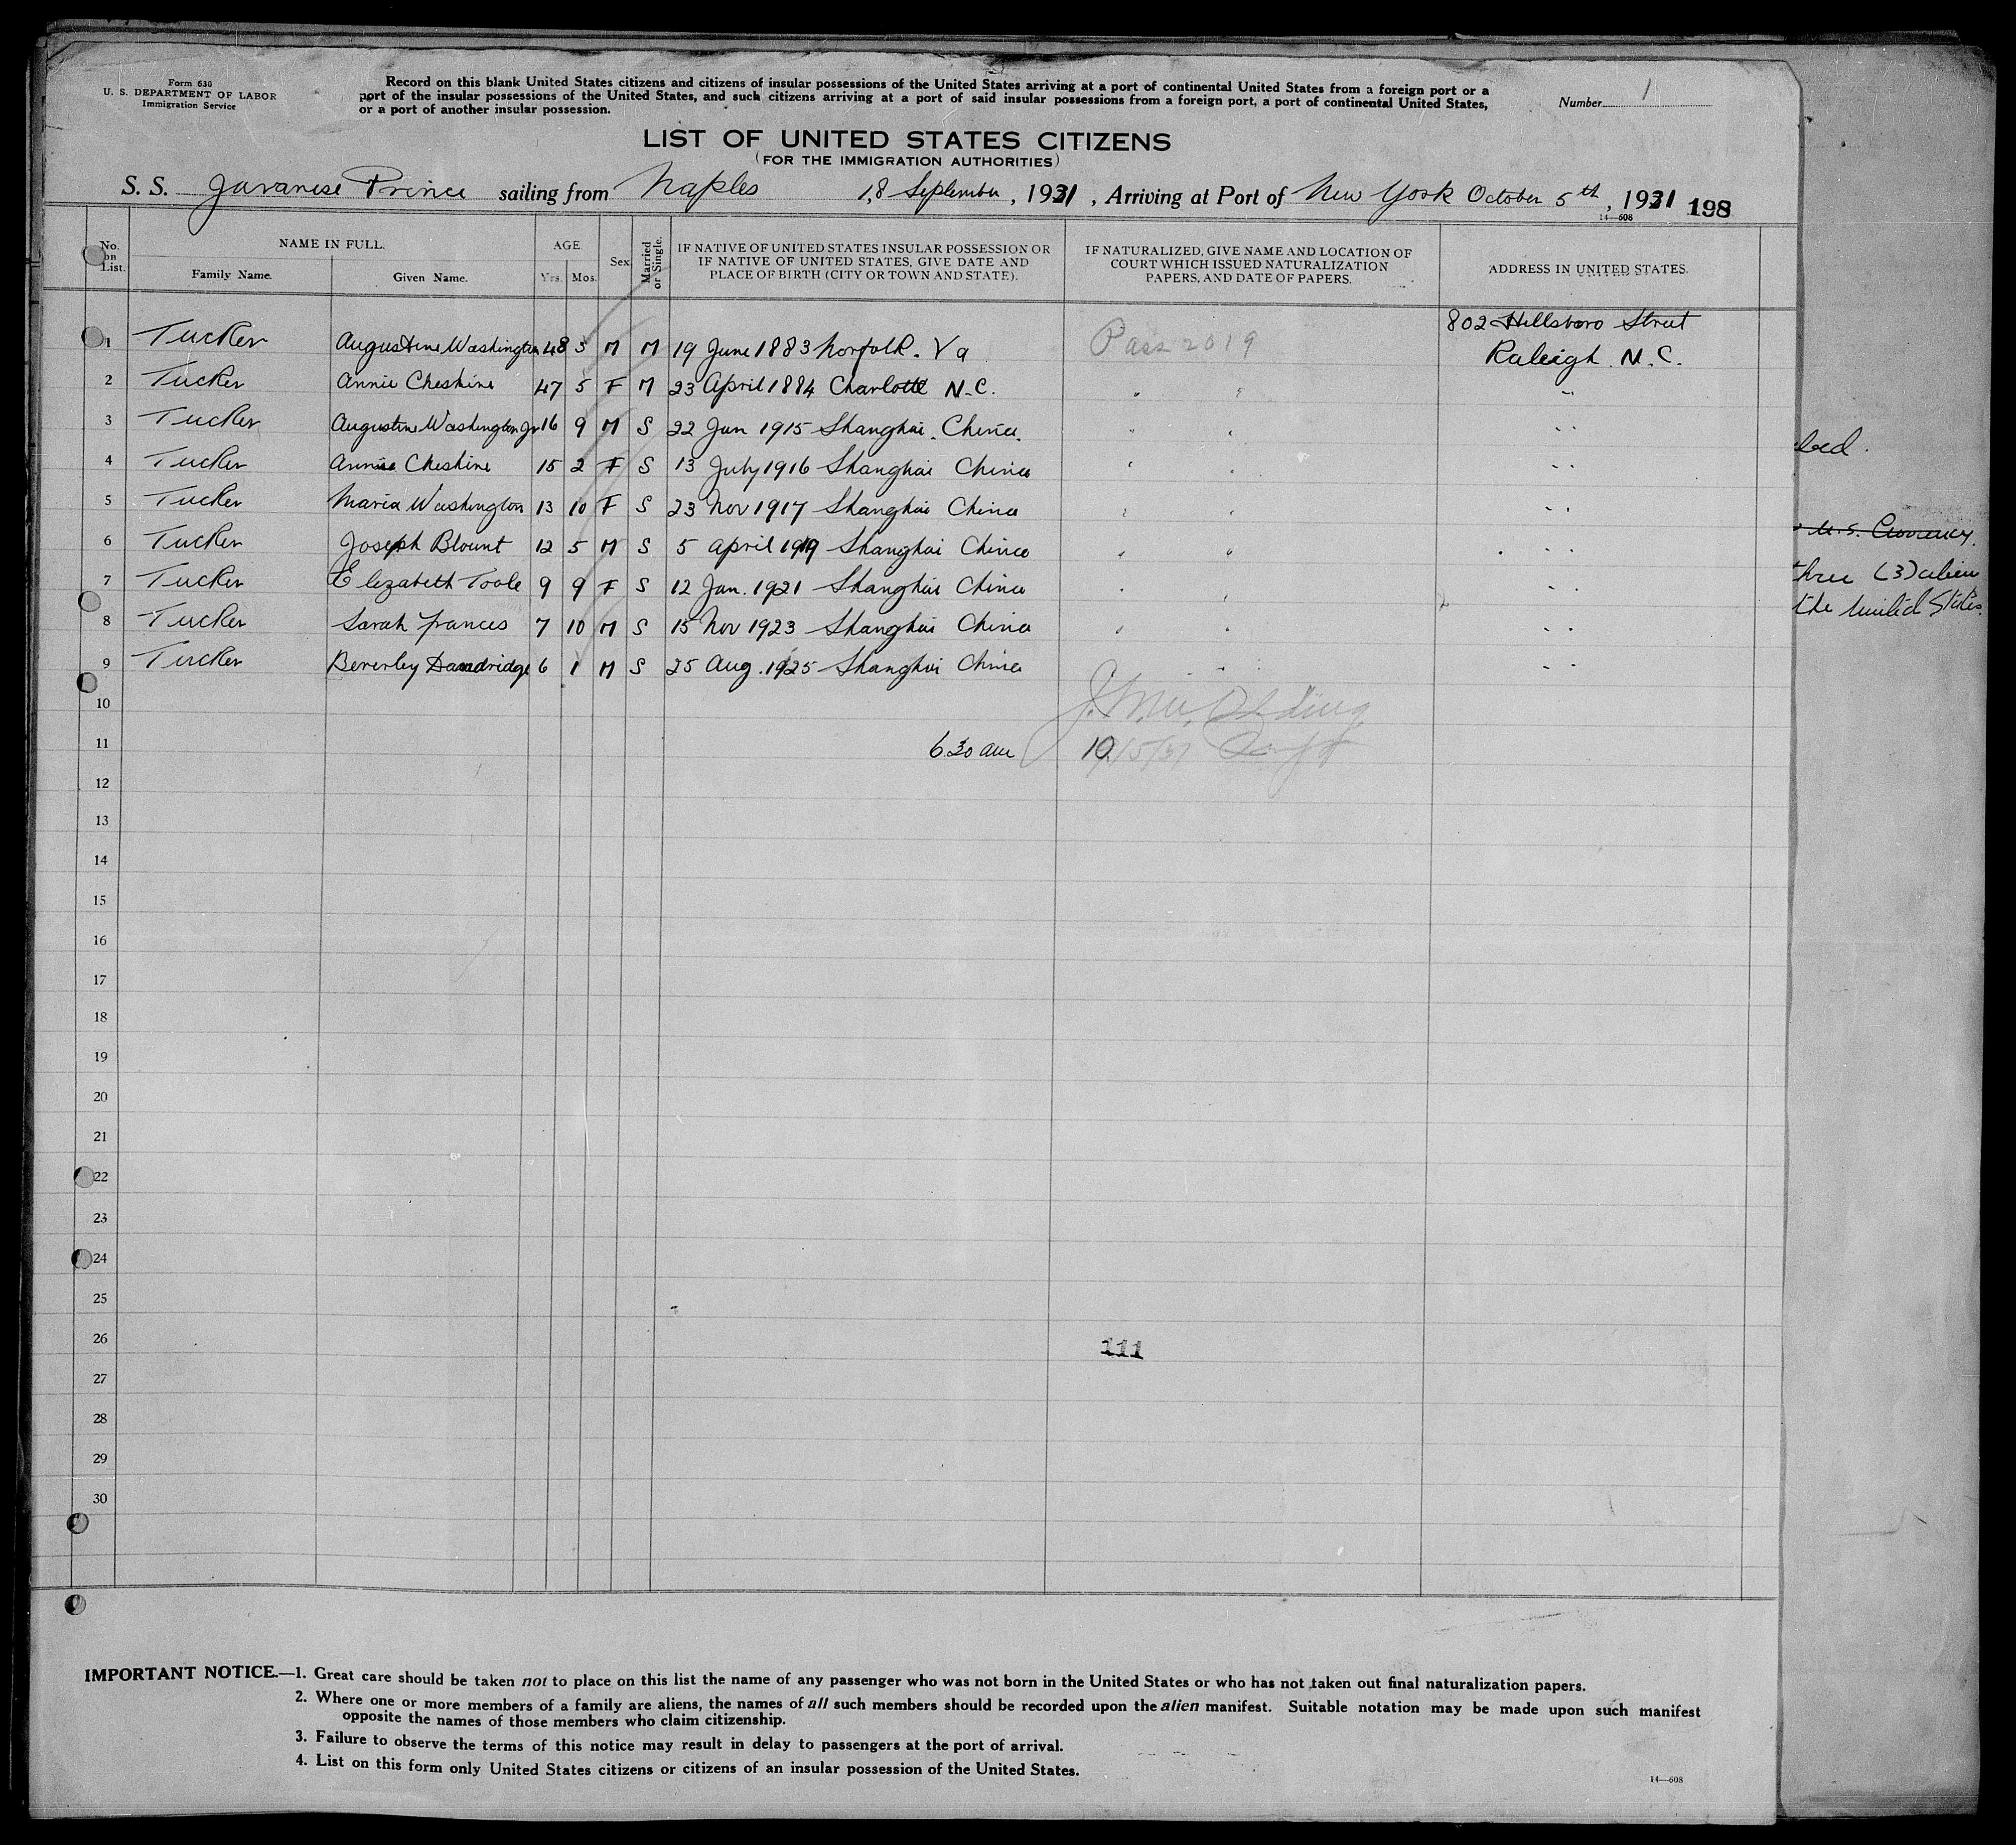 Form 630
U. S. DEPARTMENT OF LABOR
Immigration Service
Record on this blank United States citizens and citizens of insular possessions of the United States arriving at a port of continental United States from a foreign port or a
port of the insular possessions of the United States, and such citizens arriving at a port of said insular possessions from a foreign port, a port of continental United States,
or a port of another insular possession.
Number 1
LIST OF UNITED STATES CITIZENS
(FOR THE IMMIGRATION AUTHORITIES)
S. S. Javanese Prince sailing from Naples 18 September, 1931, Arriving at Port of New York October 5th, 1931 198
14—608
No. on List.
NAME IN FULL.
Family Name.
Given Name.
AGE
Yrs. Mos.
Sex
Married or Single.
IF NATIVE OF UNITED STATES INSULAR POSSESSION OR
IF NATIVE OF UNITED STATES, GIVE DATE AND
PLACE OF BIRTH (CITY OR TOWN AND STATE).
IF NATURALIZED, GIVE NAME AND LOCATION OF
COURT WHICH ISSUED NATURALIZATION
PAPERS, AND DATE OF PAPERS.
ADDRESS IN UNITED STATES.
802 Hillsboro Street
1 Tucker Augustine Washington 48 3 M M 19 June 1883 Norfolk. Va Pass 2019 Raleigh. N.C.
2 Tucker Annie Cheshire 47 5 F M 23 April 1884 Charlotte N.C. " " "
3 Tucker Augustine Washington Jr 16 9 M S 22 Jan 1915 Shanghai. China. " " "
4 Tucker Annie Cheshire 15 2 F S 13 July 1916 Shanghai China " " "
5 Tucker Maria Washington 13 10 F S 23 Nov 1917 Shanghai China " " "
6 Tucker Joseph Blount 12 5 M S 5 April 1919 Shanghai China " " "
7 Tucker Elizabeth Toole 9 9 F S 12 Jan. 1921 Shanghai China " " "
8 Tucker Sarah Frances 7 10 M S 15 Nov 1923 Shanghai China " " "
9 Tucker Beverley Dandridge 6 1 M S 25 Aug. 1925 Shanghai China " " "
10
11 6.30 am 10/5/31
12
13
14
15
16
17
18
19
20
21
22
23
24
25
26 111
27
28
29
30
U.S. Currency.
three (3) alien
the United States.
IMPORTANT NOTICE.—1. Great care should be taken not to place on this list the name of any passenger who was not born in the United States or who has not taken out final naturalization papers.
2. Where one or more members of a family are aliens, the names of all such members should be recorded upon the alien manifest. Suitable notation may be made upon such manifest
opposite the names of those members who claim citizenship.
3. Failure to observe the terms of this notice may result in delay to passengers at the port of arrival.
4. List on this form only United States citizens or citizens of an insular possession of the United States.
14—608